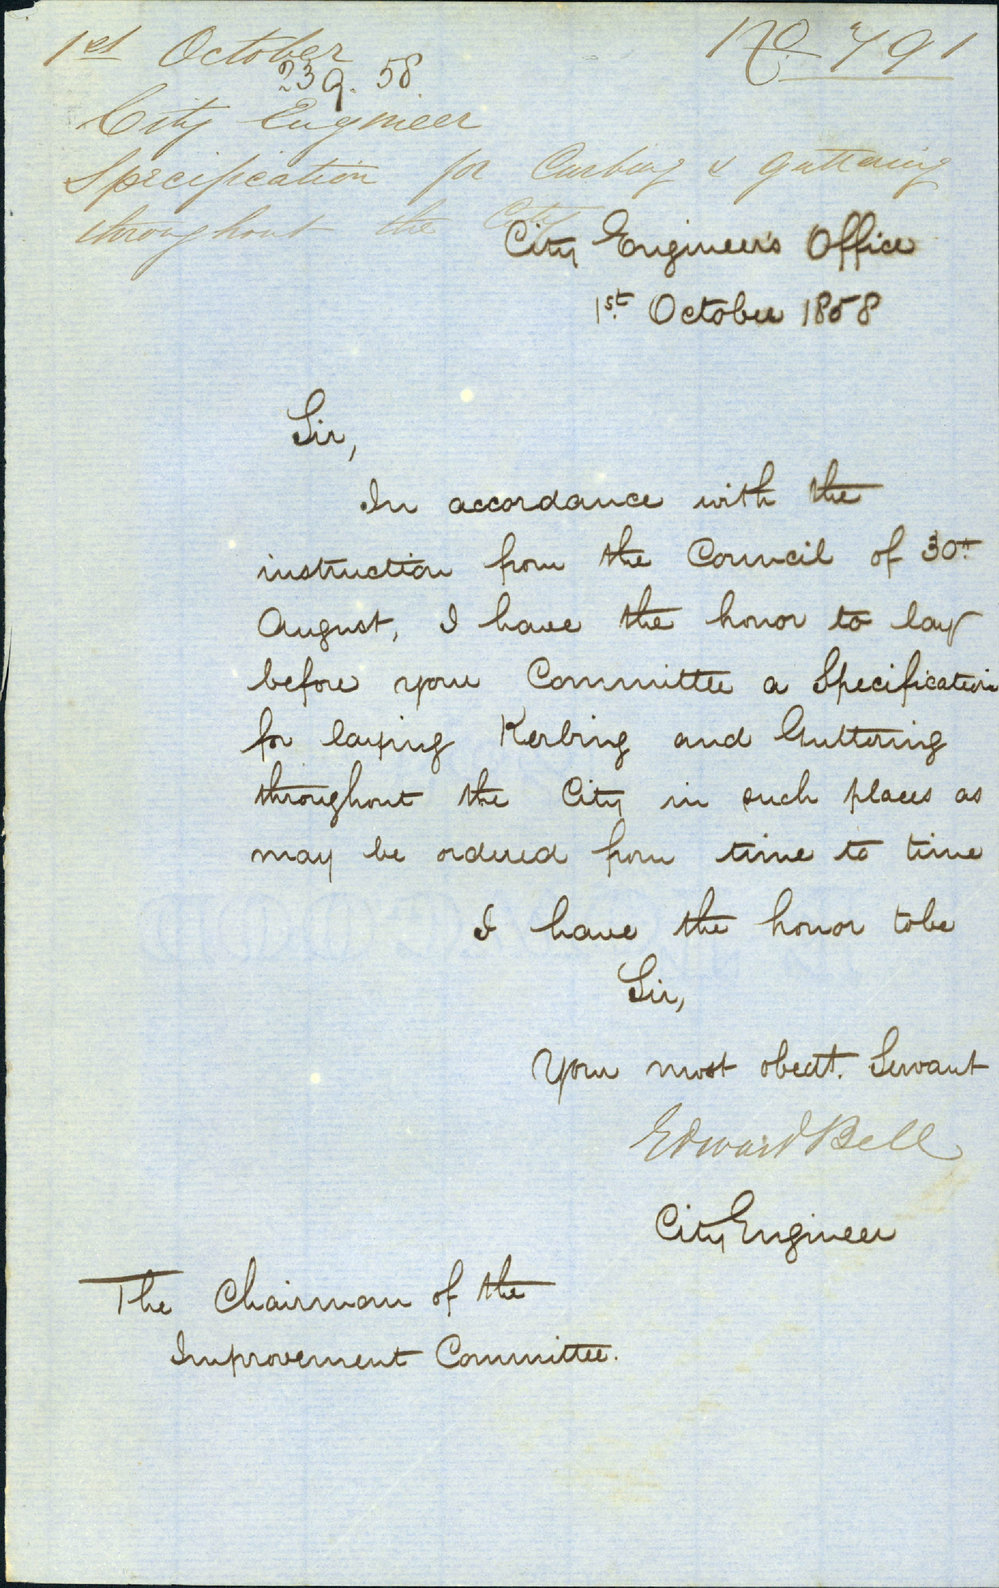 1st October No 791
23 9. 58
City Engineer
Specification for Curbing & guttering
throughout the City
City Engineer's Office
1st October 1858
Sir,
In accordance with the
instruction from the Council of 30th
August, I have the honor to lay
before your Committee a Specification
for laying Kerbing and Guttering
throughout the City in such places as
may be ordered from time to time
I have the honor to be
Sir,
Your most obedt. Servant
Edward Bell
City Engineer
The Chairman of the
Improvement Committee.